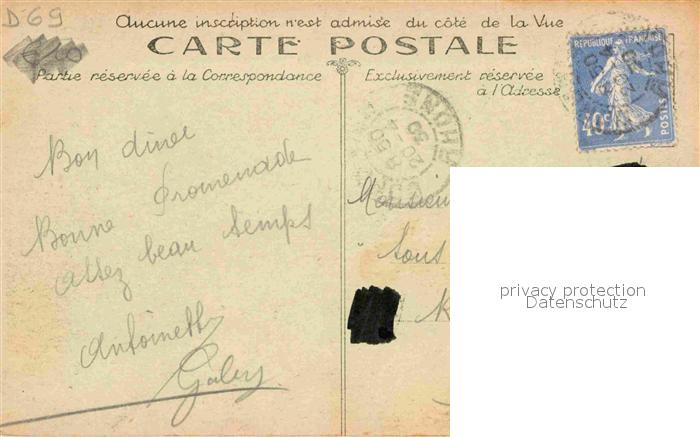 D-69
Aucune inscription n'est admise du côté de la Vue
CARTE POSTALE
Partie réservée à la Correspondance
Exclusivement réservée
à l'Adresse
REPUBLIQUE FRANÇAISE
40c
POSTES
RHONE
Bon diner
Bonne promenade
assez beau temps
Antoinett
Gaby
Monsieu
sous
privacy protection
Datenschutz